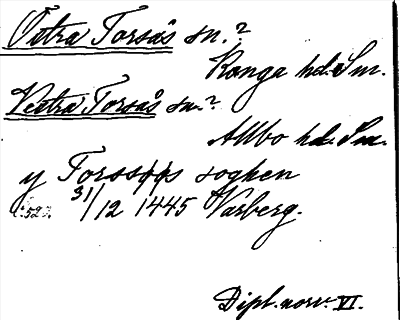 Östra Torsås sn.?
Konga hd. Sm.
Västra Torsås sn.?
Allbo hd. Sm.
y Torssøps soghen
31/12 1445 Varberg.
Dipl. norv. VI.